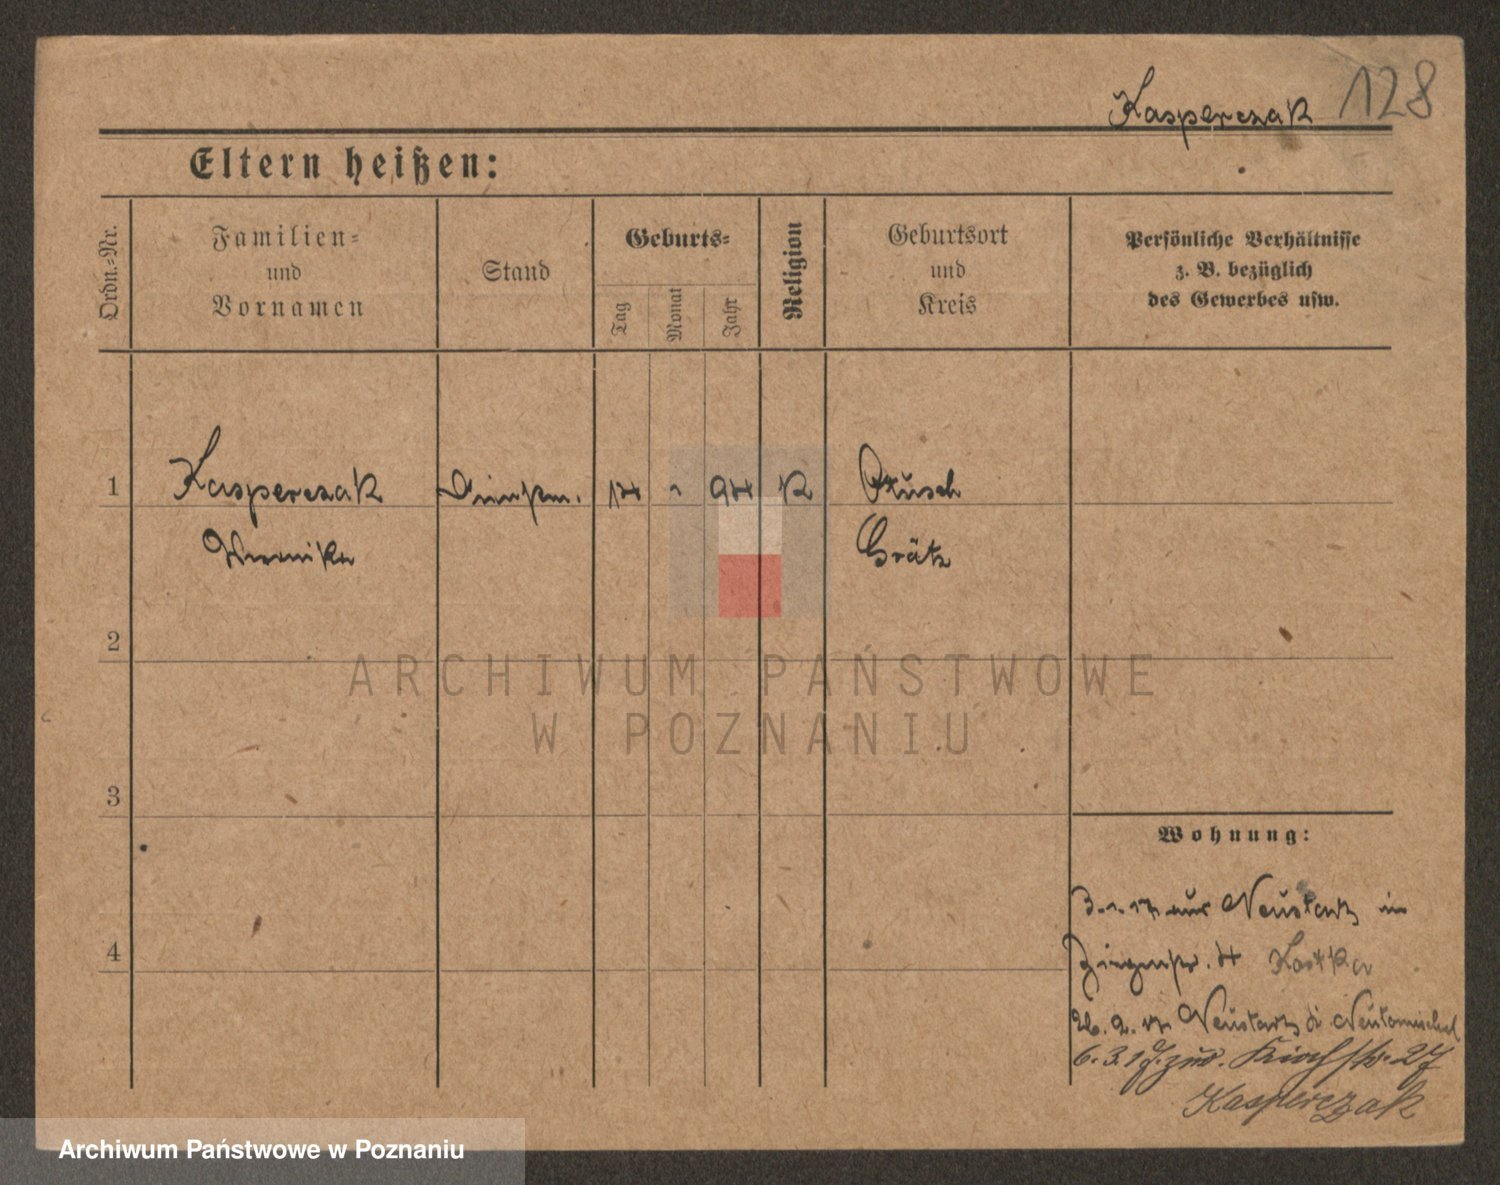 Kasperczak 128
Eltern heißen:
Ordn.-Nr.
Familien-
und
Vornamen
Stand
Geburts-
Tag
Monat
Jahr
Religion
Geburtsort
und
Kreis
Persönliche Verhältnisse
z. B. bezüglich
des Gewerbes usw.
1 Kasperczak 14 94 K
Grätz
2
ARCHIWUM PAŃSTWOWE
W POZNANIU
3
Wohnung:
3.1.17 aus in
4 4 Kostka
Neutomischel
6.3.17 Kirchstr. 27
Kasperczak
Archiwum Państwowe w Poznaniu